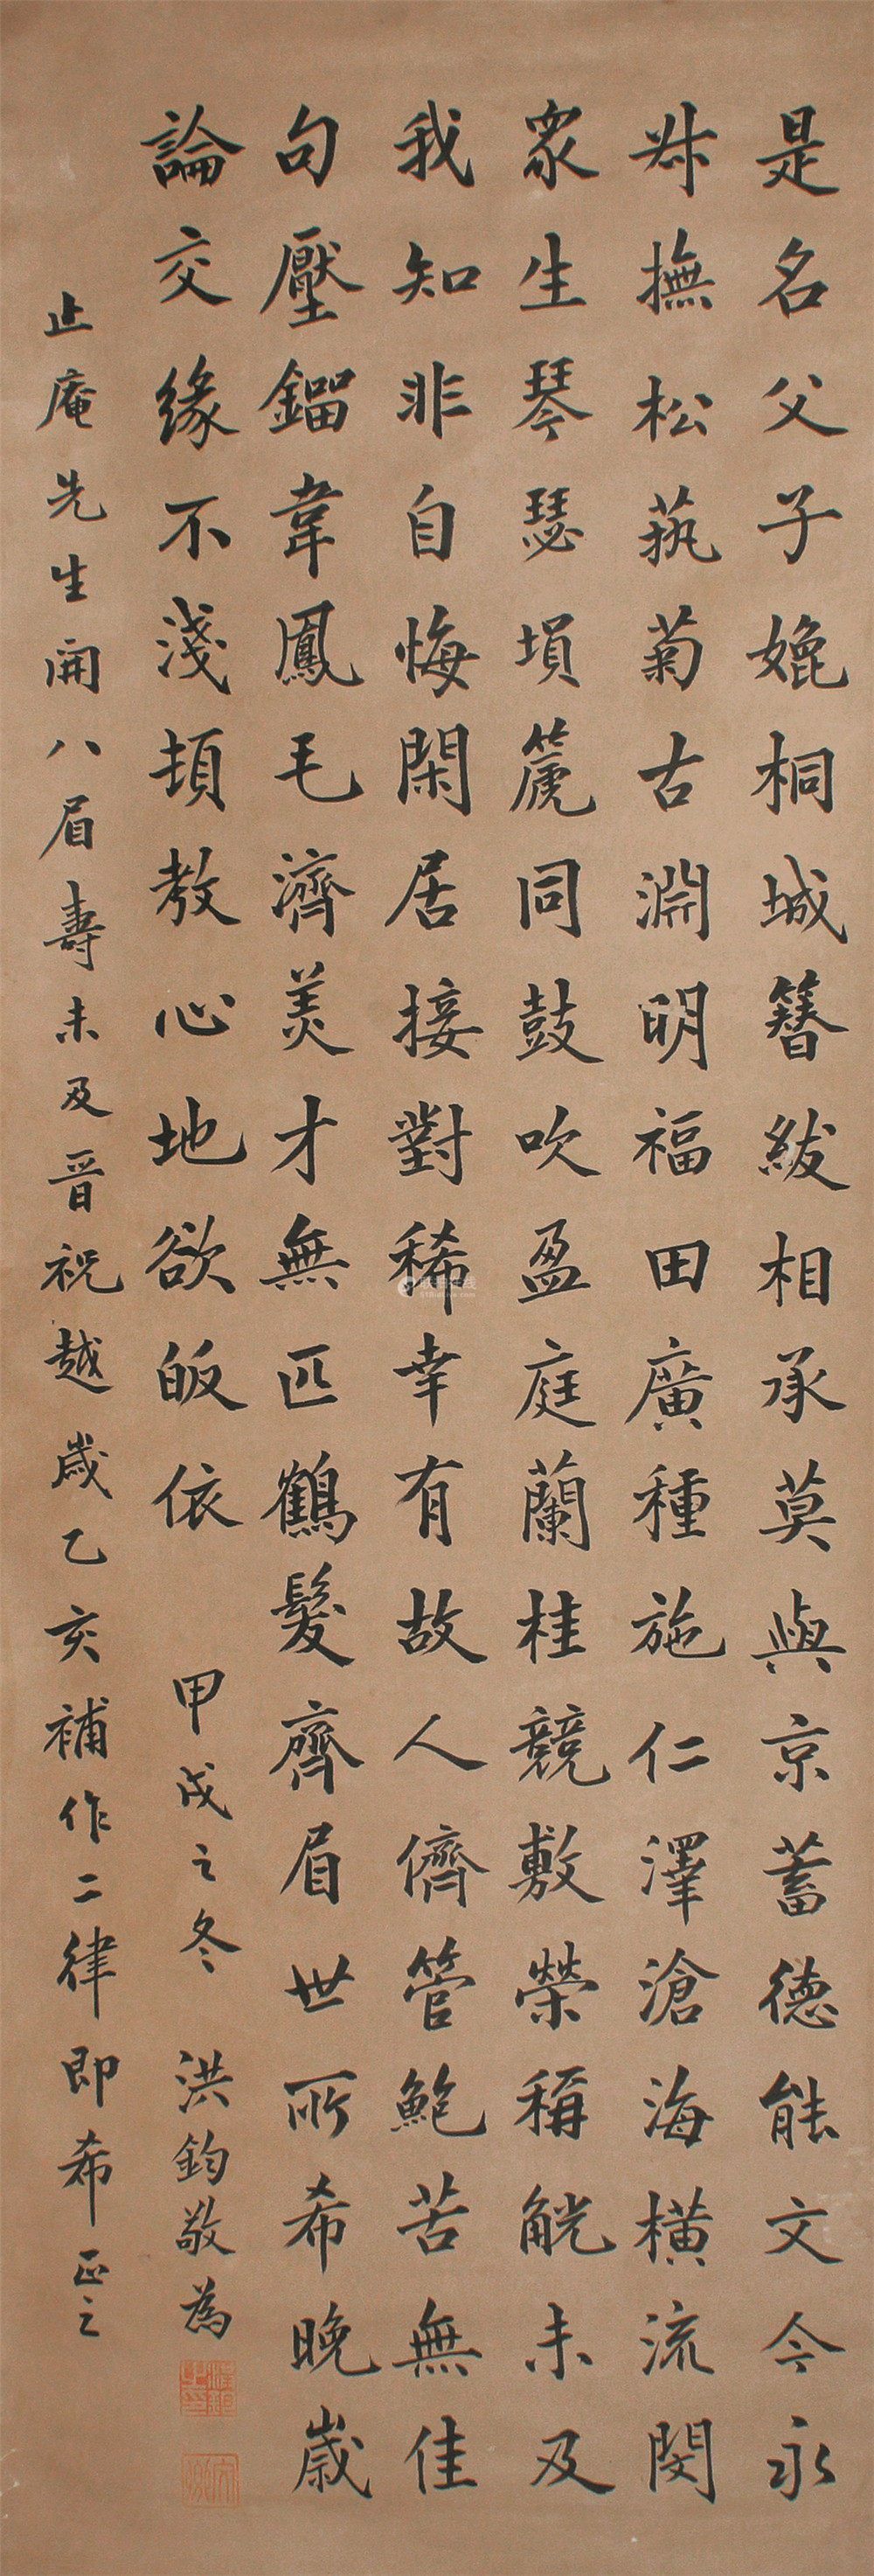 是名父子媲桐城簪紱相承莫與京蓄德能文今永
叔撫松執菊古淵明福田廣種施仁澤滄海橫流閔
眾生琴瑟塤篪同鼓吹盈庭蘭桂競敷榮稱觥未及
我知非自悔閑居接對稀幸有故人儕管鮑苦無佳
句壓鎦韋鳳毛濟美才無匹鶴髮齊眉世所希晚歲
論交緣不淺頓教心地欲皈依 甲戌之冬 洪鈞敬為
止庵先生開八眉壽未及晉祝越歲乙亥補作二律即希正之